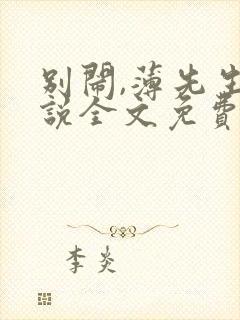 别闹,薄先生
說全文免費
李炎